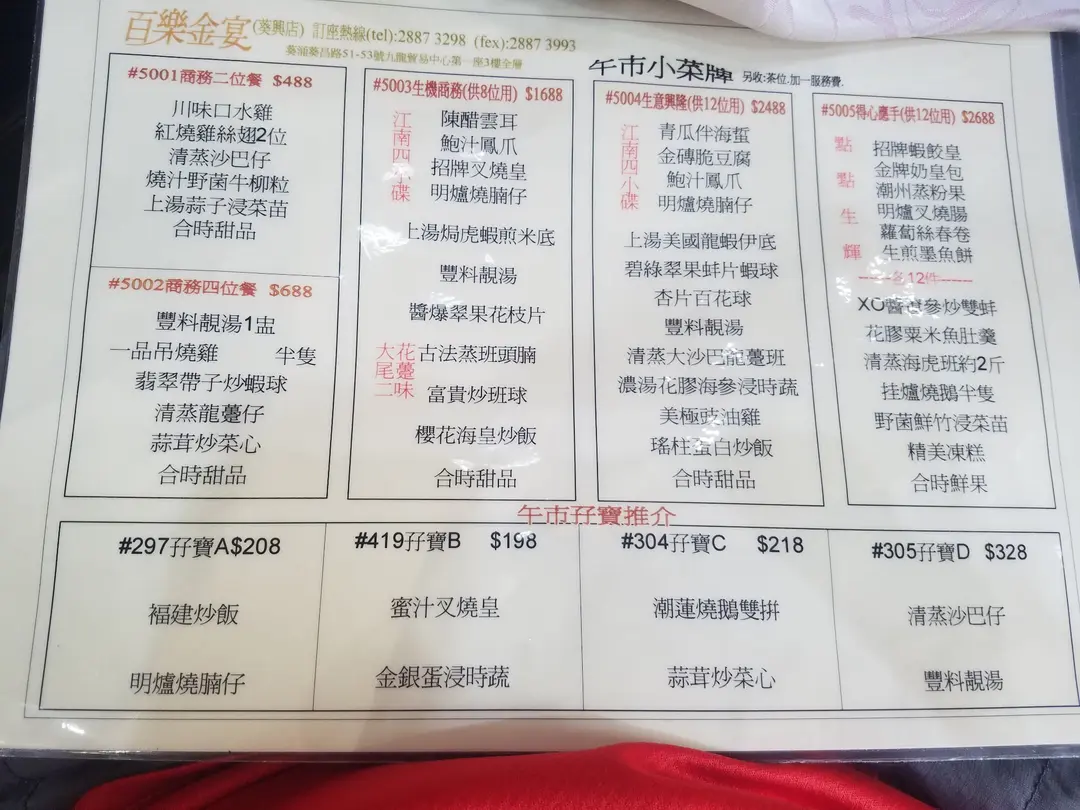 百樂金宴(葵興店) 訂座熱線(tel):2887 3298 (fex):2887 3993
葵涌葵昌路51-53號九龍貿易中心第一座3樓全層
午市小菜牌 另收:茶位.加一服務費.
#5001商務二位餐 $488
川味口水雞
紅燒雞絲翅2位
清蒸沙巴仔
燒汁野菌牛柳粒
上湯蒜子浸菜苗
合時甜品
#5002商務四位餐 $688
豐料靚湯1盅
一品吊燒雞 半隻
翡翠帶子炒蝦球
清蒸龍躉仔
蒜茸炒菜心
合時甜品
#5003生機商務(供8位用) $1688
江南四小碟
陳醋雲耳
鮑汁鳳爪
招牌叉燒皇
明爐燒腩仔
上湯焗虎蝦煎米底
豐料靚湯
醬爆翠果花枝片
大尾二味
花躉
古法蒸班頭腩
富貴炒班球
櫻花海皇炒飯
合時甜品
#5004生意興隆(供12位用) $2488
江南四小碟
青瓜伴海蜇
金磚脆豆腐
鮑汁鳳爪
明爐燒腩仔
上湯美國龍蝦伊底
碧綠翠果蚌片蝦球
杏片百花球
豐料靚湯
清蒸大沙巴龍躉班
濃湯花膠海參浸時蔬
美極豉油雞
瑤柱蛋白炒飯
合時甜品
#5005得心應手(供12位用) $2688
點點生輝
招牌蝦餃皇
金牌奶皇包
潮州蒸粉果
明爐叉燒腸
蘿蔔絲春卷
生煎墨魚餅
------各12件------
XO醬炒雙蚌
花膠粟米魚肚羹
清蒸海虎班約2斤
挂爐燒鵝半隻
野菌鮮竹浸菜苗
精美凍糕
合時鮮果
午市孖寶推介
#297孖寶A$208
福建炒飯
明爐燒腩仔
#419孖寶B $198
蜜汁叉燒皇
金銀蛋浸時蔬
#304孖寶C $218
潮蓮燒鵝雙拼
蒜茸炒菜心
#305孖寶D $328
清蒸沙巴仔
豐料靚湯